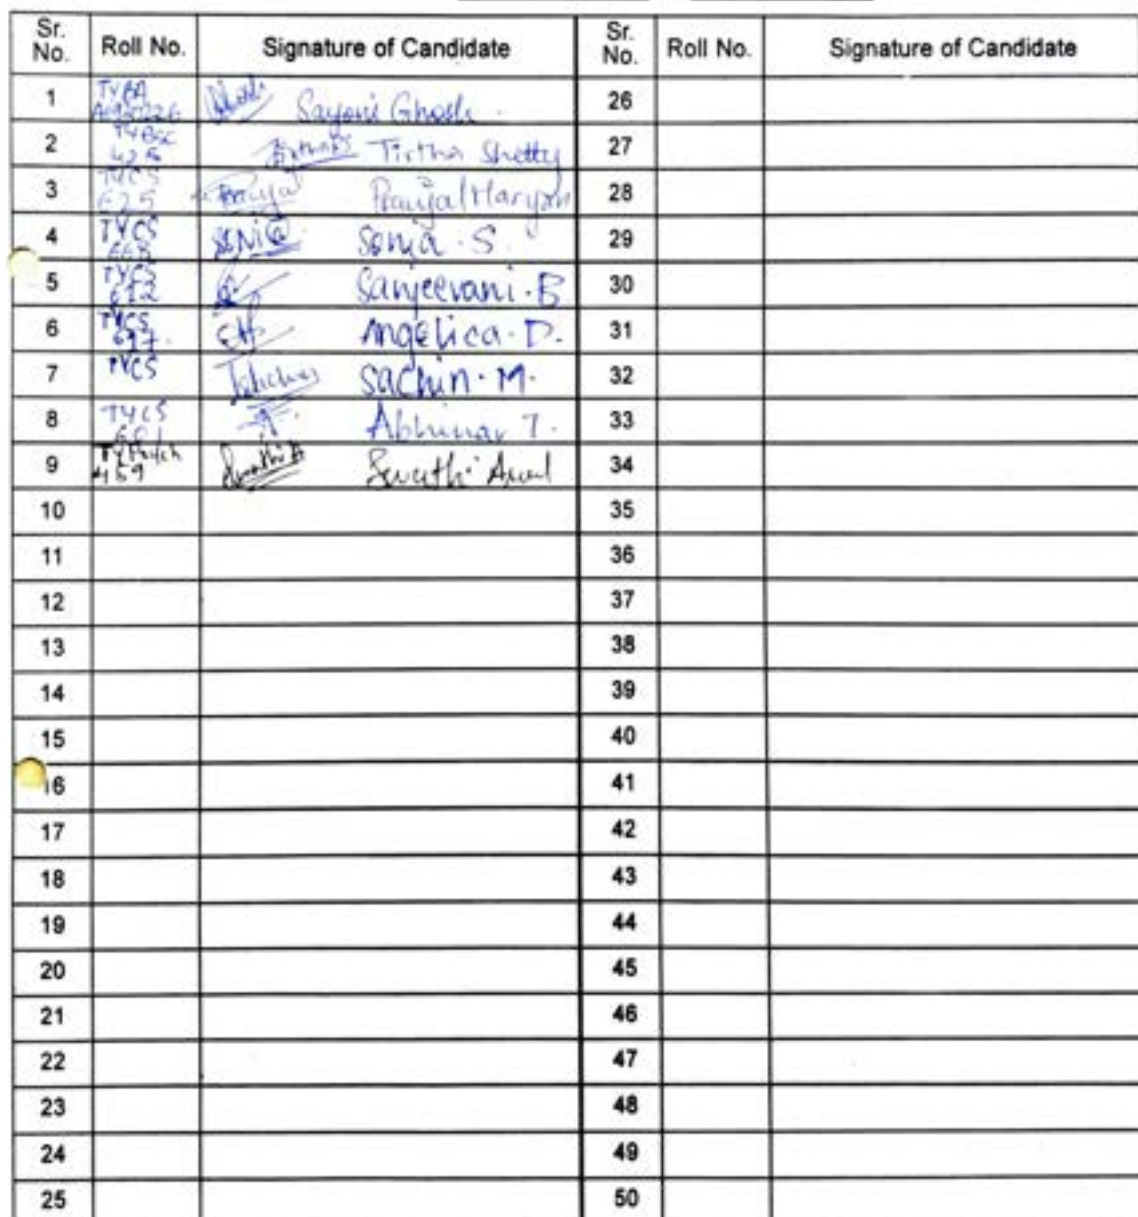 Sr. No. Roll No. Signature of Candidate Sr. No. Roll No. Signature of Candidate
1 TYBA Sayoni Ghosh 26
2 TYBSC 425 Tirtha Shetty 27
3 TYCS 625 Pranjal 28
4 TYCS 668 Sonia Sonia . S 29
5 TYCS 672 Sanjeevani . B 30
6 TYCS 677 Angelica . D. 31
7 TYCS Sachin . M. 32
8 TYCS Abhinav T. 33
9 459 Swathi 34
10 35
11 36
12 37
13 38
14 39
15 40
16 41
17 42
18 43
19 44
20 45
21 46
22 47
23 48
24 49
25 50